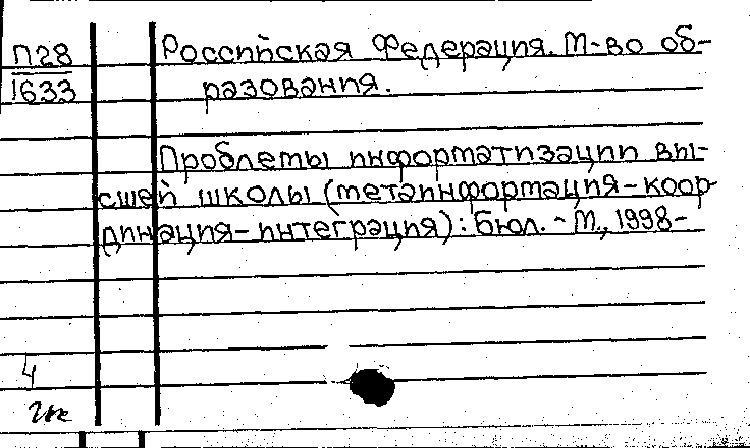 П28
1633
Российская Федерация. М-во об-
разования.
Проблемы информатизации вы-
сшей школы (метаинформация-коор-
динация-интеграция): Бюл. - М., 1998-
4